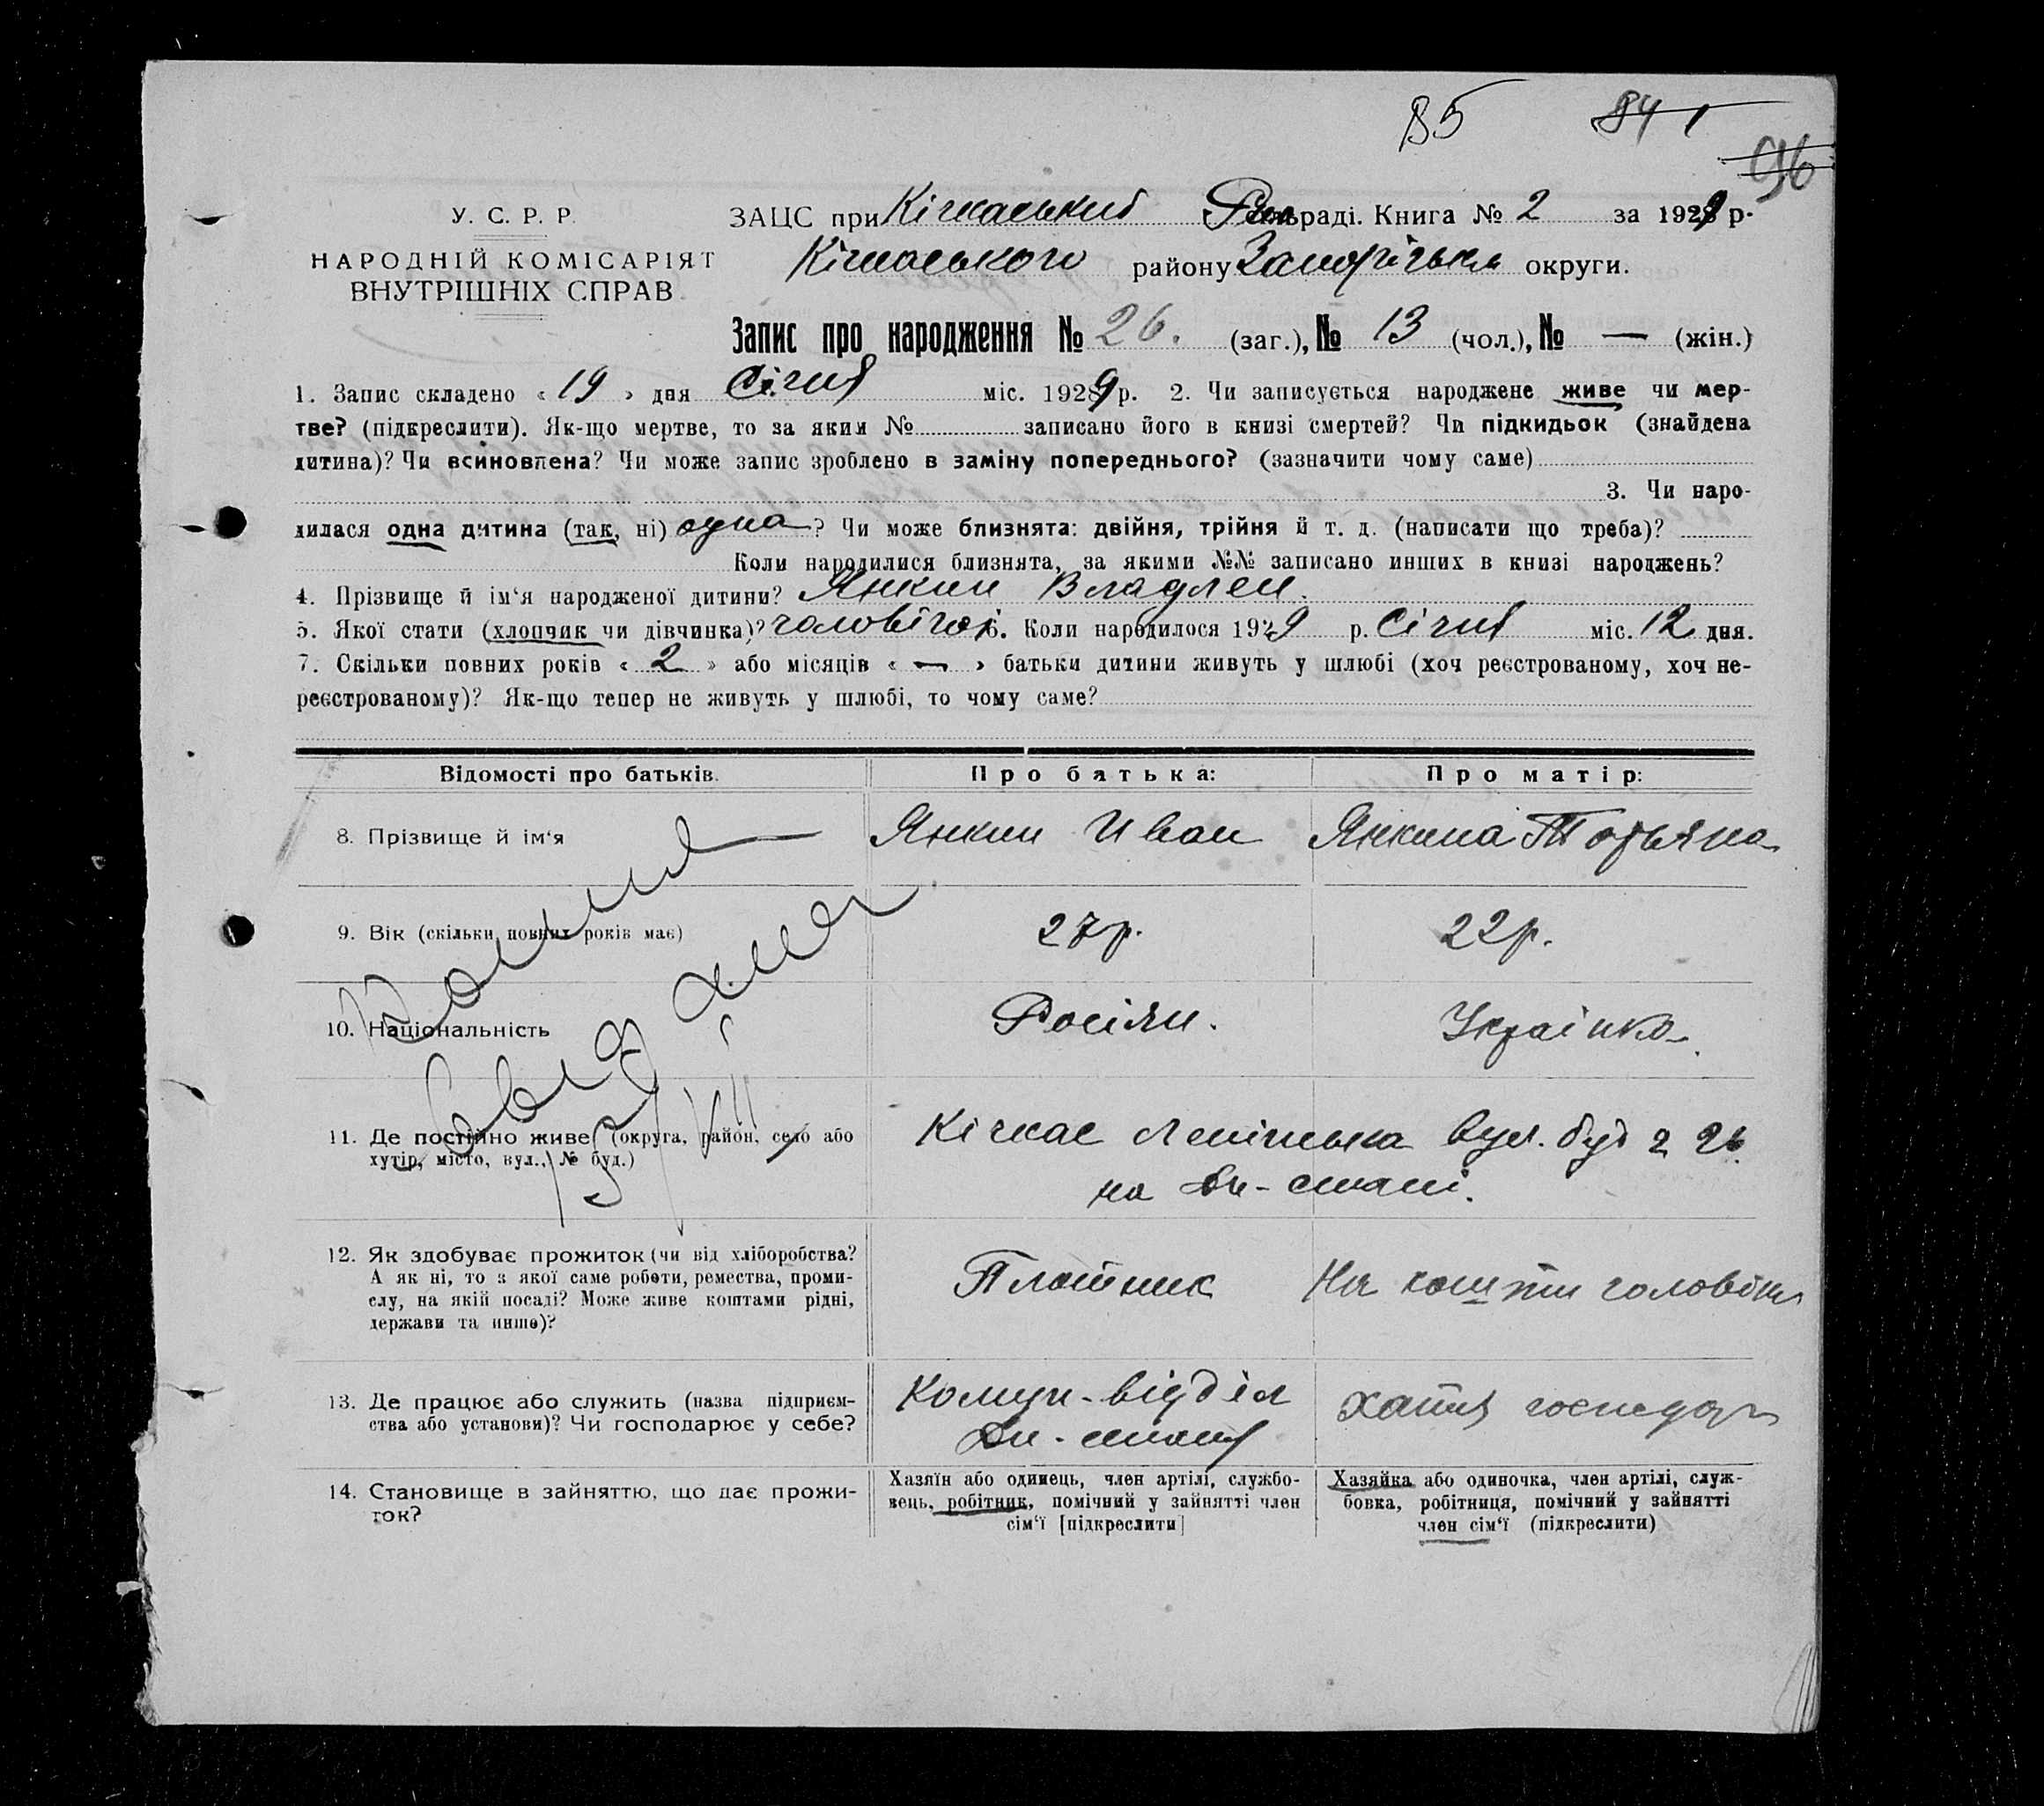 85 84 1
96
У. С. Р. Р.
НАРОДНІЙ КОМІСАРІЯТ
ВНУТРІШНІХ СПРАВ
ЗАЦС при Кічкаській раді. Книга № 2 за 1929 р.
Кічкаського району Запорізька округи.
Запис про народження № 26. (заг.), № 13 (чол.), № — (жін.)
1. Запис складено « 19 » дня Січня міс. 1929 р. 2. Чи записується народжене живе чи мер-
тве? (підкреслити). Як-що мертве, то за яким № записано його в книзі смертей? Чи підкидьок (знайдена
дитина)? Чи всиновлена? Чи може запис зроблено в заміну попереднього? (зазначити чому саме)
3. Чи наро-
дилася одна дитина (так, ні) одна? Чи може близнята: двійня, трійня й т. д. (написати що треба)?
Коли народилися близнята, за якими №№ записано инших в книзі народжень?
4. Прізвище й ім'я народженої дитини? Янкин Владлен.
5. Якої стати (хлопчик чи дівчинка)? чоловічої 6. Коли народилося 1929 р. Січня міс. 12 дня.
7. Скільки повних років « 2 » або місяців « — » батьки дитини живуть у шлюбі (хоч реєстрованому, хоч не-
реєстрованому)? Як-що тепер не живуть у шлюбі, то чому саме?
Відомості про батьків. Про батька: Про матір:
8. Прізвище й ім'я Янкин Иван Янкина Татьяна
9. Вік (скільки повних років має) 27 р. 22 р.
10. Національність Росіян. Українка.
11. Де постійно живе (округа, район, село або
хутір, місто, вул., № буд.)
Кічкас Ленінська вул. буд 2 26
на Дн-стані.
12. Як здобуває прожиток (чи від хліборобства?
А як ні, то з якої саме роботи, ремества, проми-
слу, на якій посаді? Може живе коштами рідні,
держави та инше)?
Плотник На кошти чоловіка
13. Де працює або служить (назва підприєм-
ства або установи)? Чи господарює у себе?
Комун-відділ
Дн-стану
Хатня господар
14. Становище в зайняттю, що дає прожи-
ток?
Хазяїн або одинець, член артілі, службо-
вець, робітник, помічний у зайнятті член
сім'ї [підкреслити]
Хазяйка або одиночка, член артілі, служ-
бовка, робітниця, помічний у зайнятті
член сім'ї (підкреслити)